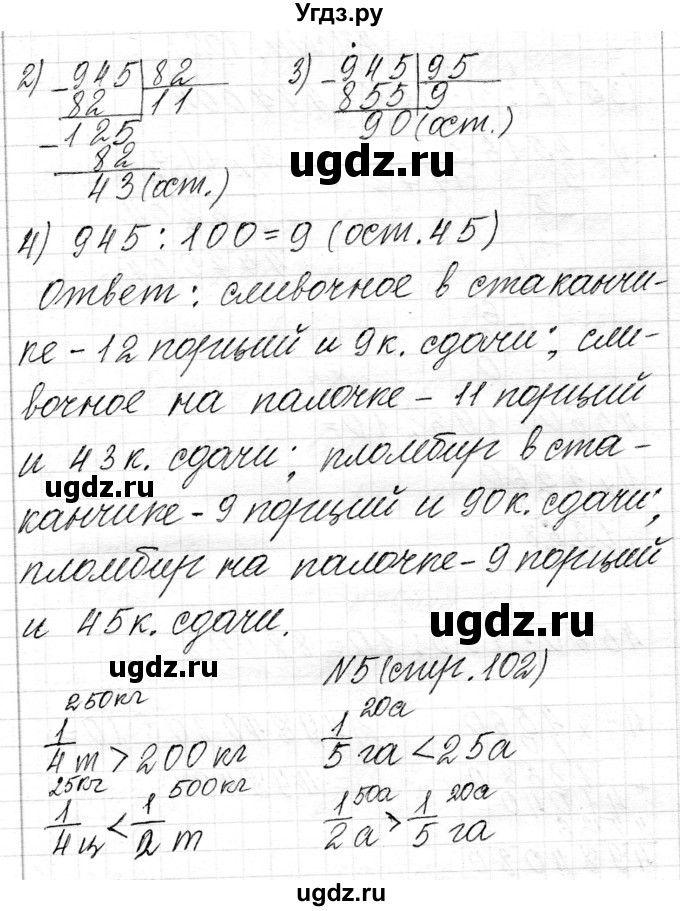 Угдз.ру
2) 945 | 82
82 | 11
125
82
43 (ост.)
3) 945 | 95
855 | 9
90 (ост.)
ugdz.ru
4) 945 : 100 = 9 (ост. 45)
Ответ: сливочное в стаканчи-
ке - 12 порций и 9 к. сдачи; сли-
вочное на палочке - 11 порций
и 43 к. сдачи; пломбир в ста-
ugdz.ru
канчике - 9 порций и 90 к. сдачи;
пломбир на палочке - 9 порций
и 45 к. сдачи.
ugdz.ru
ugdz.ru
N5 (стр. 102)
250 кг
1/4 т > 200 кг
20а
1/5 га < 25а
25кг 500кг
1/4 ц < 1/2 т
50а 20а
1/2 а > 1/5 га
ugdz.ru